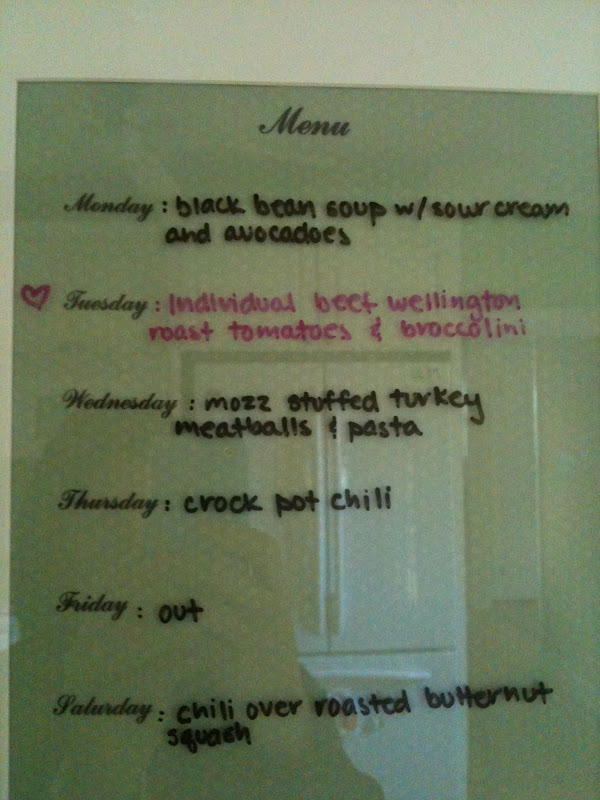 Menu
Monday: black bean soup w/ sour cream
and avocadoes
Tuesday: Individual beef wellington
roast tomatoes & broccolini
Wednesday: mozz stuffed turkey
meatballs & pasta
Thursday: crock pot chili
Friday: out
Saturday: chili over roasted butternut
squash